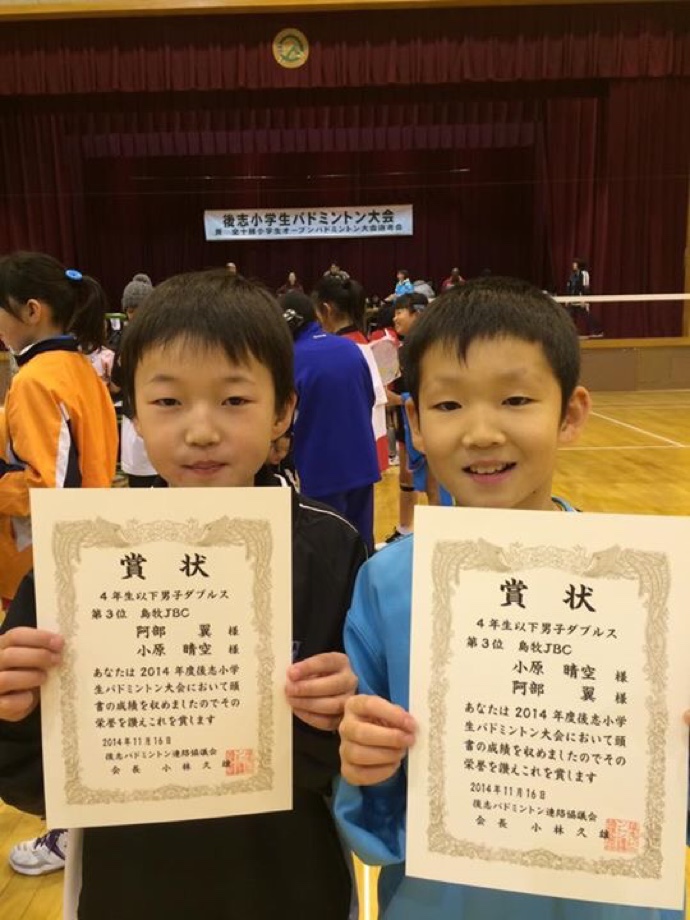 後志小学生バドミントン大会
全十勝小学生オープンバドミントン大会選考会
賞状
4年生以下男子ダブルス
第3位 島牧JBC
阿部 翼 様
小原 晴空 様
あなたは2014年度後志小学
生バドミントン大会において頭
書の成績を収めましたのでその
栄誉を讃えこれを賞します
2014年11月16日
後志バドミントン連絡協議会
会長 小林久雄
賞状
4年生以下男子ダブルス
第3位 島牧JBC
小原 晴空 様
阿部 翼 様
あなたは2014年度後志小学
生バドミントン大会において頭
書の成績を収めましたのでその
栄誉を讃えこれを賞します
2014年11月16日
後志バドミントン連絡協議会
会長 小林久雄